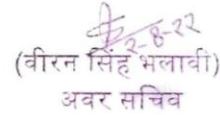 2-8-22
(वीरन सिंह भलावी)
अवर सचिव